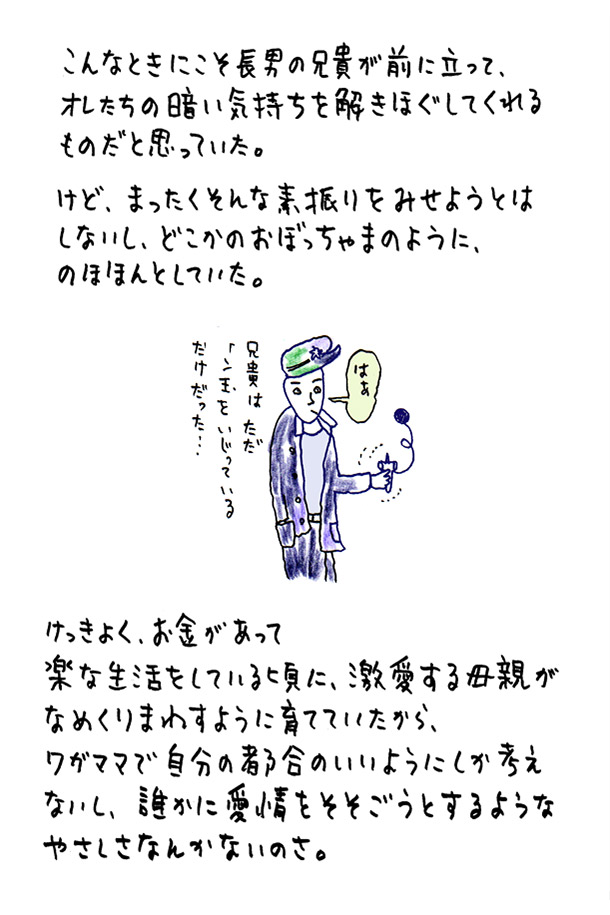 こんなときにこそ長男の兄貴が前に立って、
オレたちの暗い気持ちを解きほぐしてくれる
ものだと思っていた。
けど、まったくそんな素振りをみせようとは
しないし、どこかのおぼっちゃまのように、
のほほんとしていた。
兄貴は ただ
「ン玉をいじっている
だけだった…
はぁ
けっきょく、お金があって
楽な生活をしている頃に、激愛する母親が
なめくりまわすように育てていたから、
ワガママで自分の都合のいいようにしか考え
ないし、誰かに愛情をそそごうとするような
やさしさなんかないのさ。